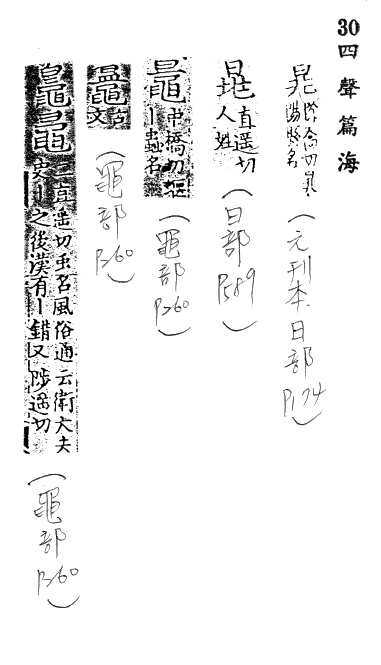 30 四聲篇海
晁 陟喬切
(元刊本日部 P174)
晁 直遥切人姓
(日部 P589)
鼂 中橋切䵷丨蟲名
(黽部 P260)
鼂 古文
(黽部 P260)
鼂鼂 二直遥切虫名風俗通云衛大夫史丨之後漢有丨錯又陟遥切
(黽部 P260)